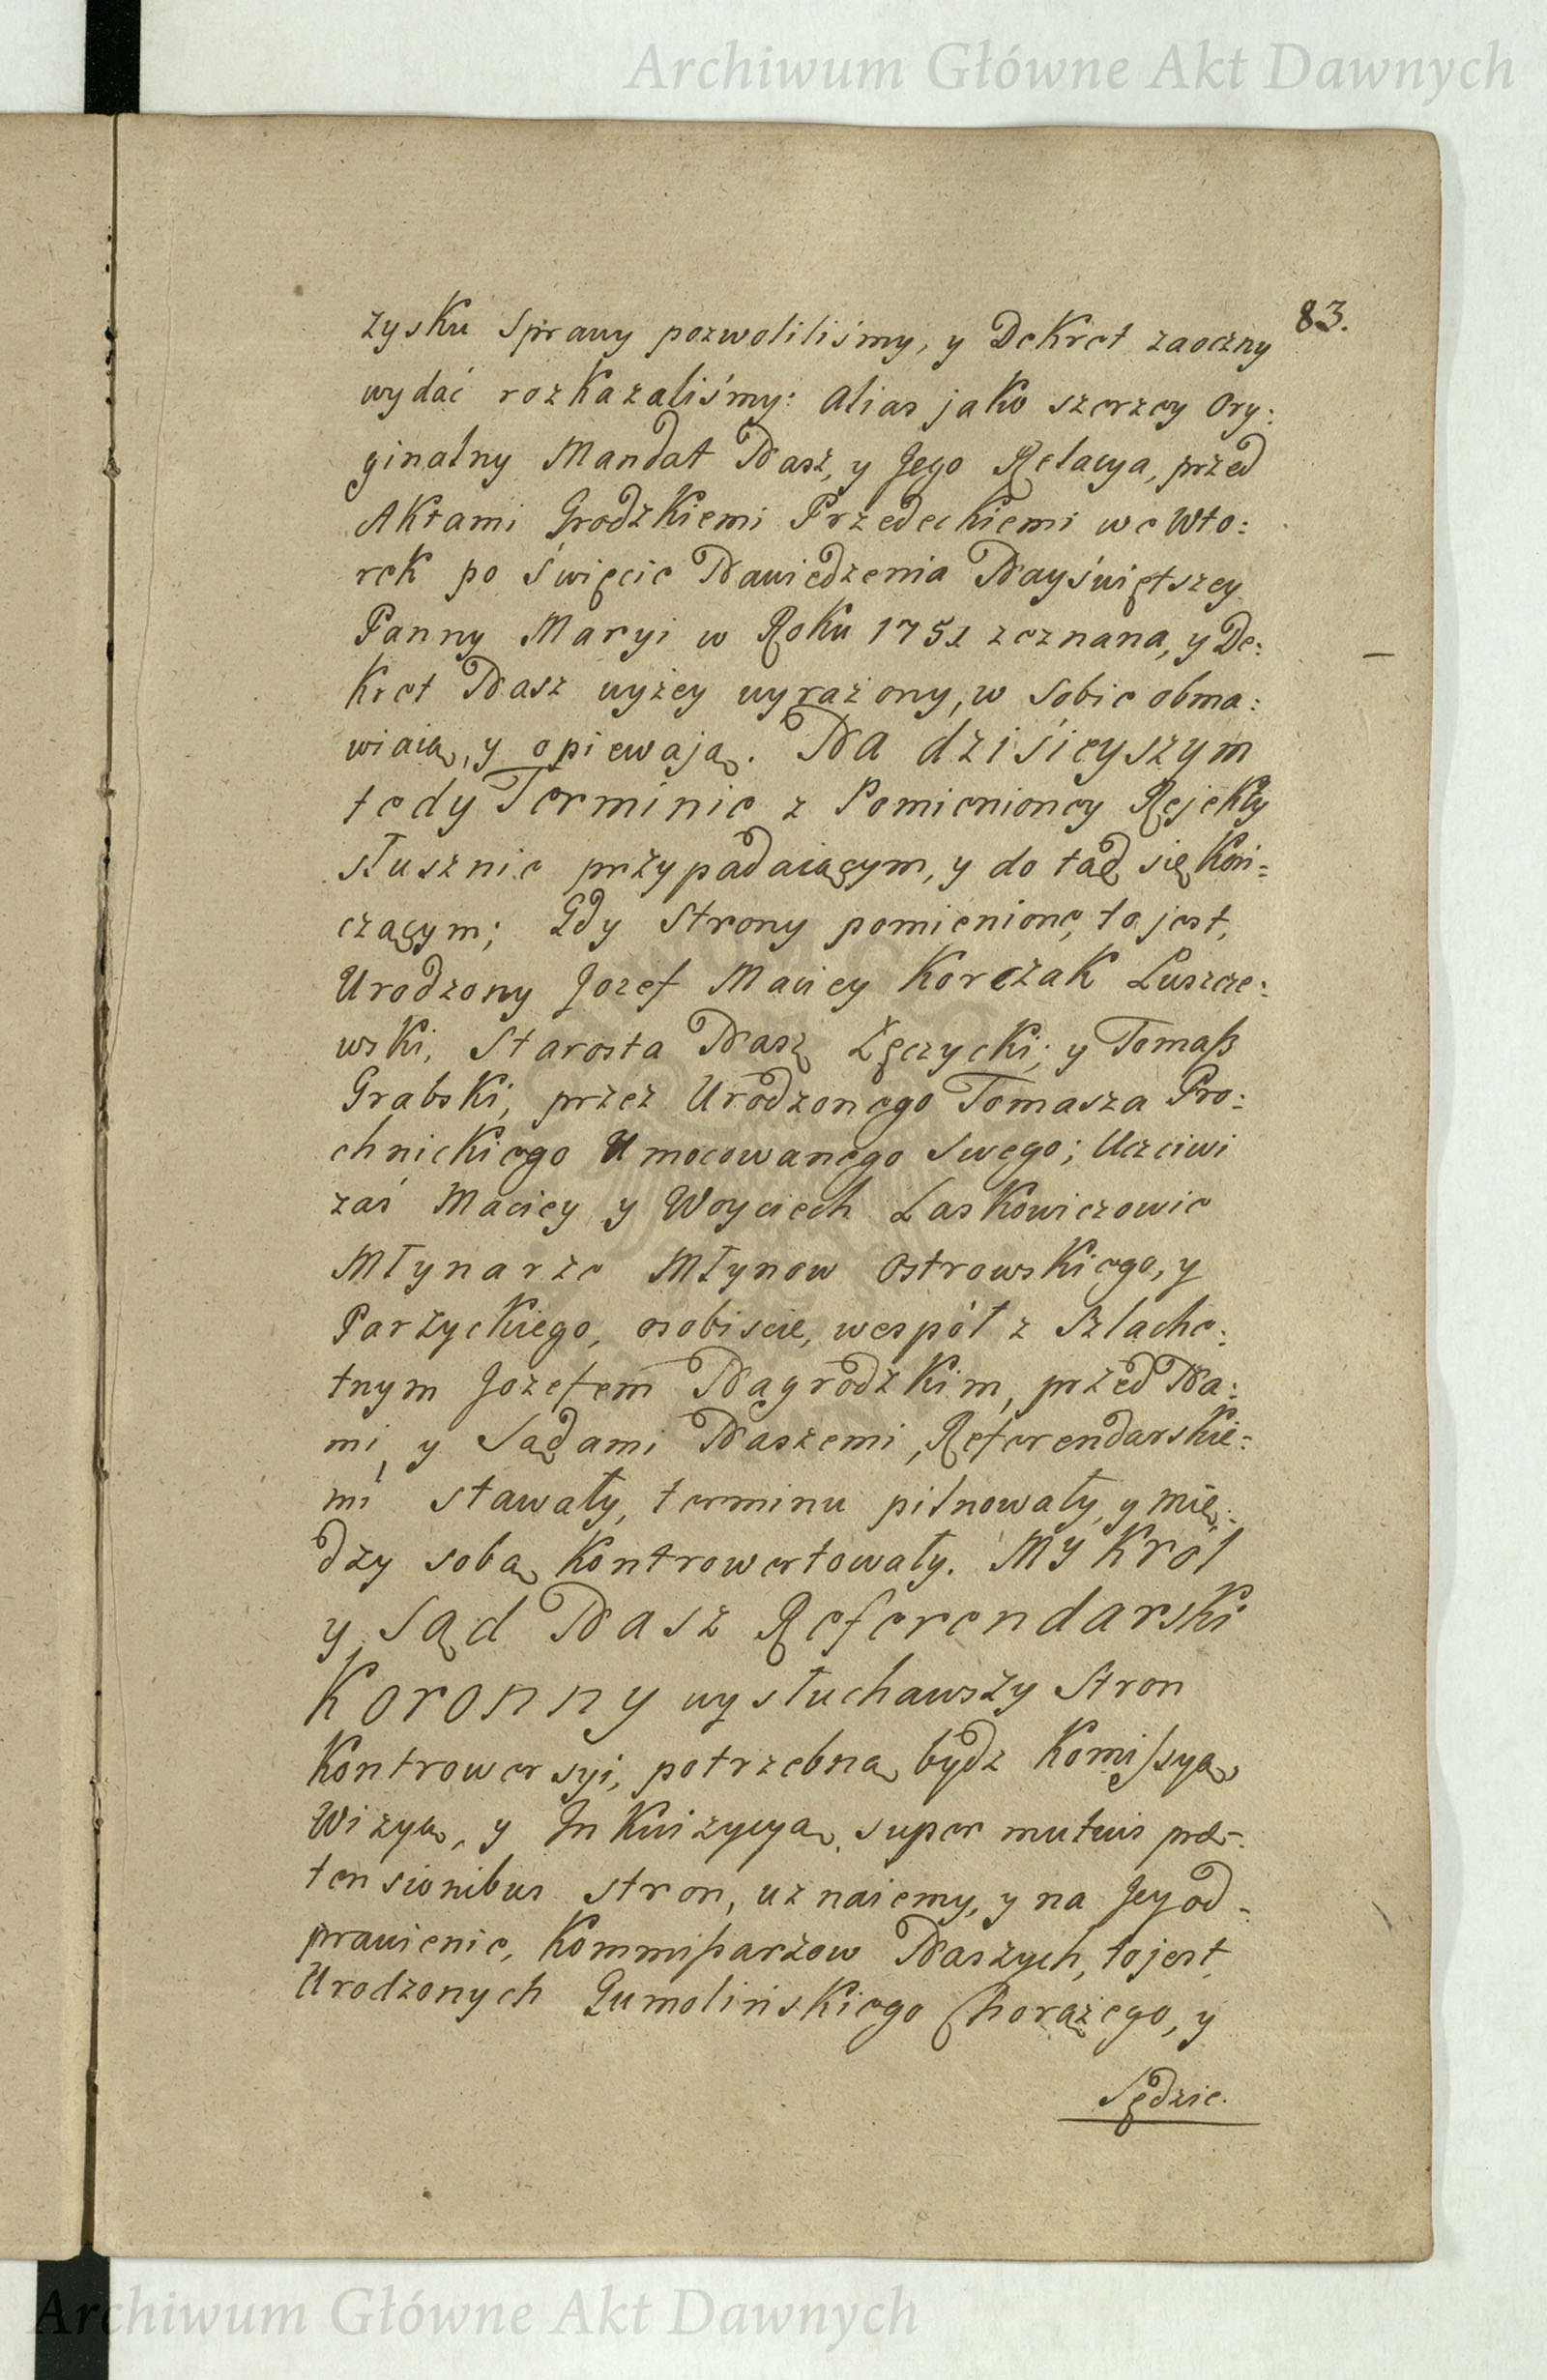 Archiwum Główne Akt Dawnych
83.
zysku Sprawy pozwoliliśmy, y DeKret zaoczny
wydać rozKazaliśmy: alias jaKo szerzey Ory:
ginalny Mandat Nasz, y Jego Relacya, przed
AKtami GrodzKiemi PrzedecKiemi we Wto:
reK po Święcie Nawiedzenia Nayświętszey
Panny Maryi w RoKu 1751 zeznana, y De:
Kret Nasz wyżey wyrażony, w Sobie obma:
wiaią, y opiewają. Na dzisieyszym
tedy Terminie z Pomienioney RejeKty
słusznie przypadaiącym, y do tąd się Koń=
czącym; Gdy Strony pomienione, to jest,
Urodzony Jozef Maciey KorczaK Luszcze:
wsKi, Starosta Nasz ŁęczycKi; y Tomaß
GrabsKi, przez Urodzonego Tomasza Pro:
chnicKiego Umocowanego Swego; Uczciwi
zaś Maciey y Woyciech LasKowiczowie
Młynarze Młynow OstrowsKiego, y
ParzycKiego, osobiscie, wespół z Szlache:
tnym Jozefem NagrodzKim, przed Na:
mi, y Sądami Naszemi, ReferendarsKie:
mi stawały, terminu pilnowały, y mię:
dzy sobą Kontrowertowały. MY Krol
y Sąd Nasz ReferendarsKi
Koronny wysłuchawszy Stron
Kontrowersyi, potrzebną bydz Komissyą,
Wizyą, y InKwizycyą, super mutuis præ-
tensionibus stron, uznaiemy, y na Jey od-
prawienie, Kommißarzow Naszych, to jest,
Urodzonych GumolińsKiego Chorążego, y
Sędzie.
Archiwum Główne Akt Dawnych